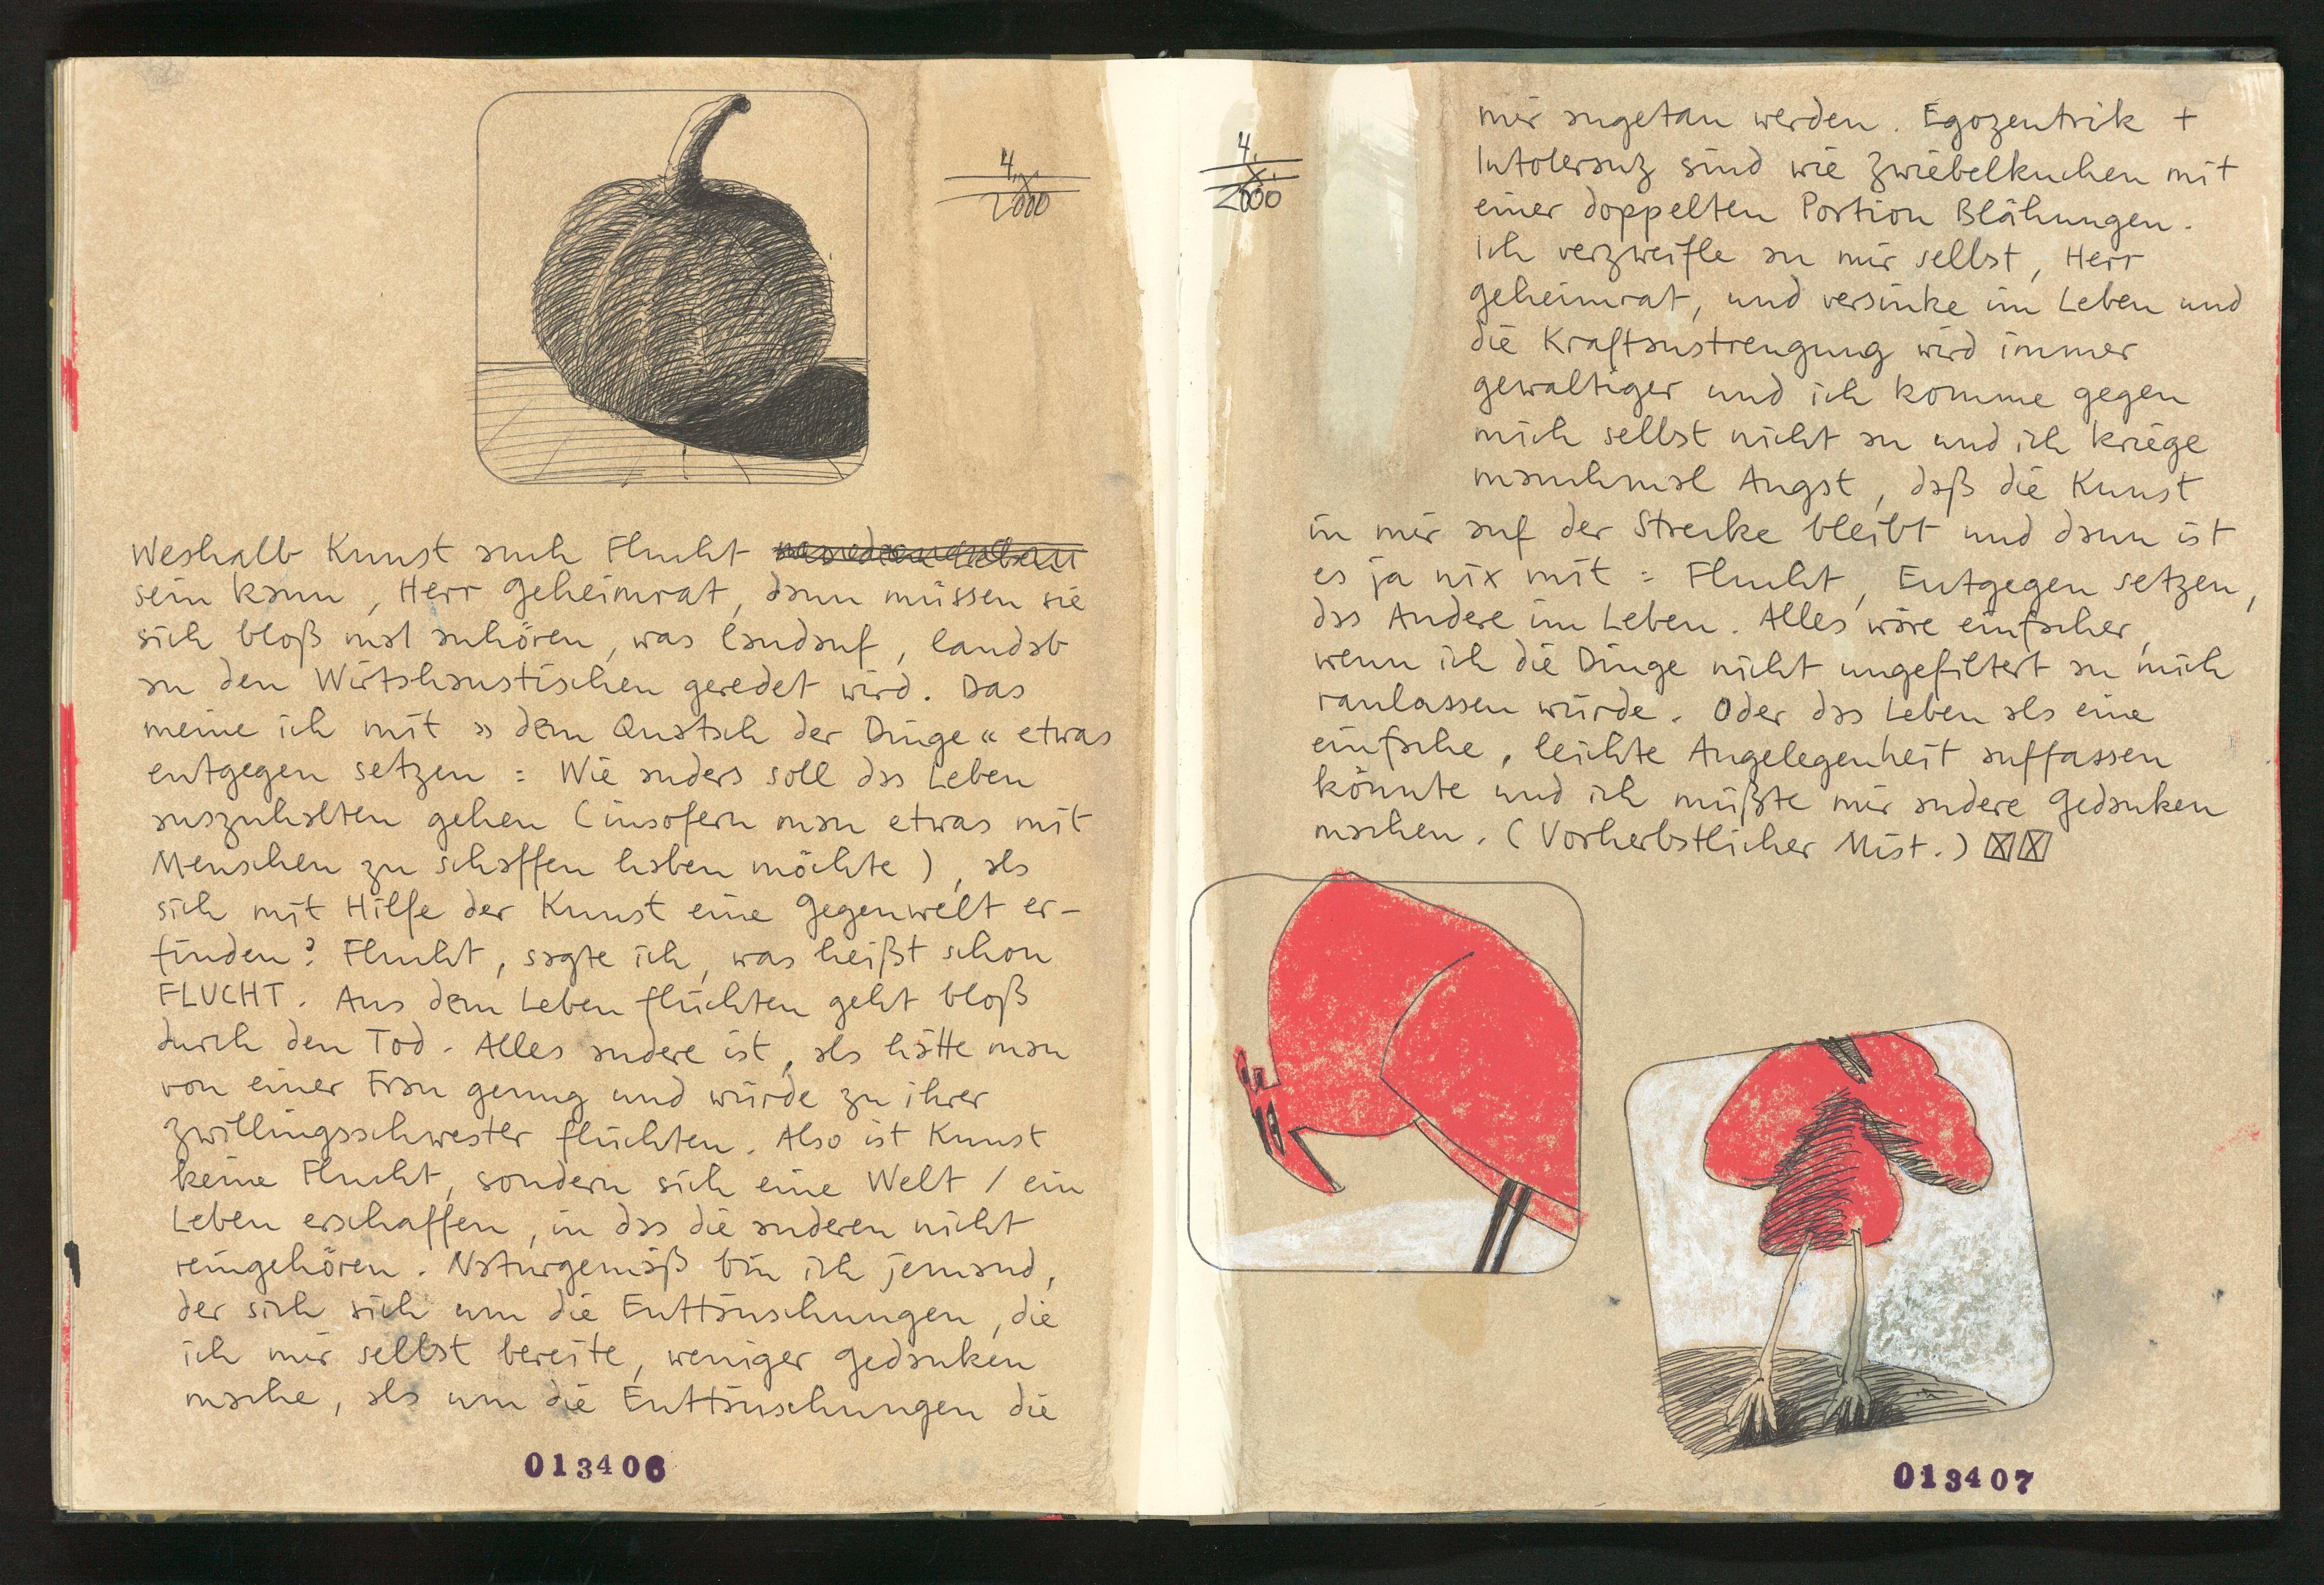 4.8.
2000
Weshalb Kunst auch Flucht
sein kann, Herr Geheimrat, dann müssen sie
sich bloß mal anhören, was landauf, landab
an den Wirtshaustischen geredet wird. Das
meine ich mit » dem Quatsch der Dinge « etwas
entgegen setzen : Wie anders soll das Leben
auszuhalten gehen (insofern man etwas mit
Menschen zu schaffen haben möchte), als
sich mit Hilfe der Kunst eine Gegenwelt er-
finden? Flucht, sagte ich, was heißt schon
FLUCHT. Aus dem Leben flüchten geht bloß
durch den Tod. Alles andere ist, als hätte man
von einer Frau genug und würde zu ihrer
Zwillingsschwester flüchten. Also ist Kunst
keine Flucht, sondern sich eine Welt / ein
Leben erschaffen, in das die anderen nicht
reingehören. Naturgemäß bin ich jemand,
der sich sich um die Enttäuschungen, die
ich mir selbst bereite, weniger Gedanken
mache, als um die Enttäuschungen die
013406
4.8.
2000
mir angetan werden. Egozentrik +
Intoleranz sind wie Zwiebelkuchen mit
einer doppelten Portion Blähungen.
Ich verzweifle an mir selbst, Herr
Geheimrat, und versinke im Leben und
die Kraftanstrengung wird immer
gewaltiger und ich komme gegen
mich selbst nicht an und ich kriege
manchmal Angst, daß die Kunst
in mir auf der Strecke bleibt und dann ist
es ja nix mit : Flucht, Entgegen setzen,
das Andere im Leben. Alles wäre einfacher,
wenn ich die Dinge nicht ungefiltert an mich
ranlassen würde. Oder das Leben als eine
einfache, leichte Angelegenheit auffassen
könnte und ich müßte mir andere Gedanken
machen. (Vorherbstlicher Mist.)
013407